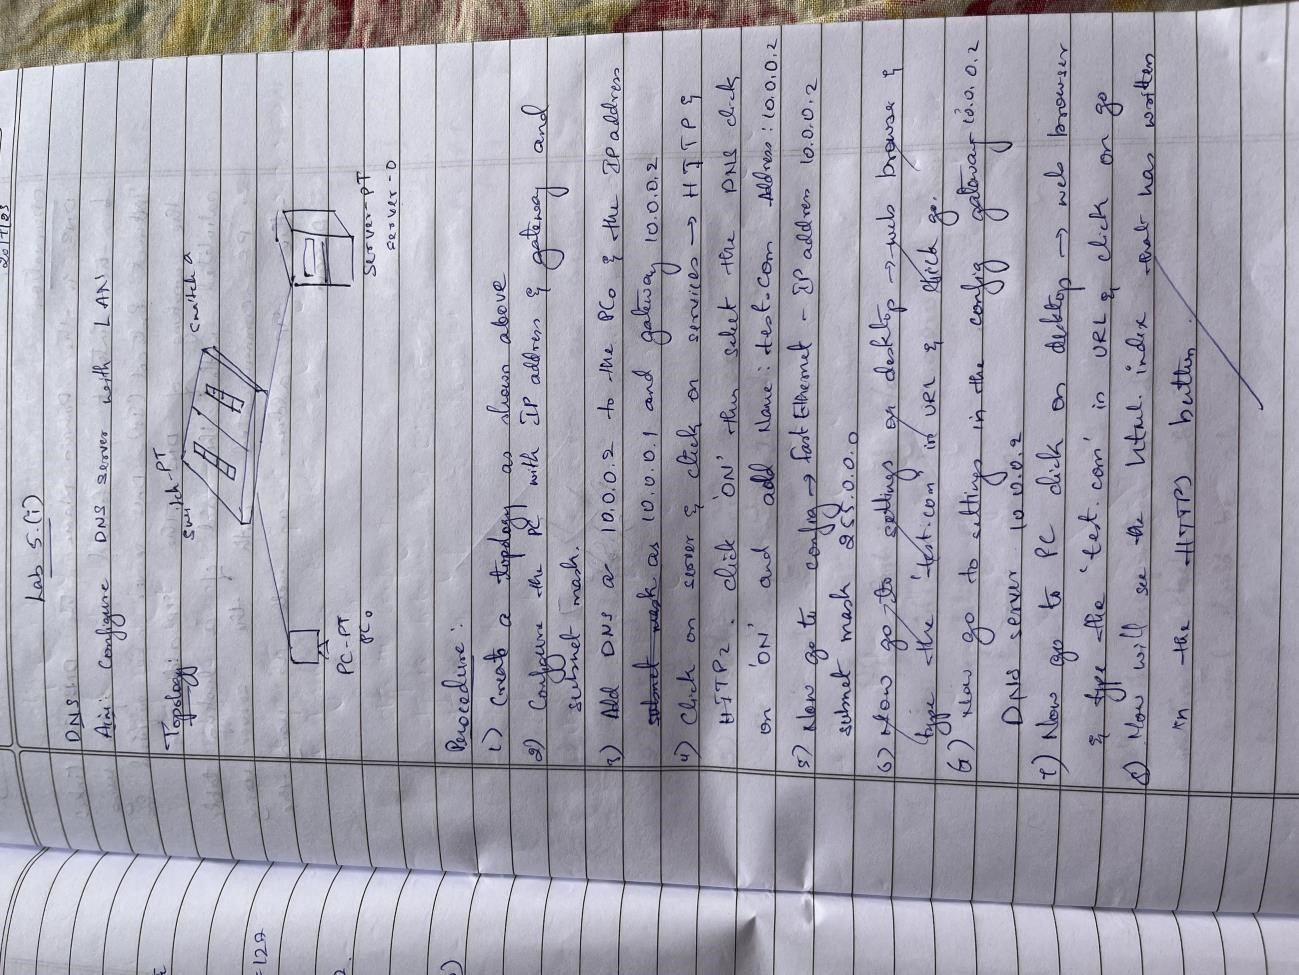 Lab 5.(i)
DNS
Aim: Configure DNS server with LAN
Topology:
Switch-PT
Switch 0
PC-PT
PC0
Server-PT
server-0
Procedure:
1) Create a topology as shown above
2) Configure the PC with IP address & gateway and
subnet mask.
3) Add DNS as 10.0.0.2 to the PC0 & the IP address
subnet mask as 10.0.0.1 and gateway 10.0.0.2
4) Click on server & click on services → HTTP &
HTTP2. click 'ON' then select the DNS click
on 'ON' and add Name: test.com Address: 10.0.0.2
5) Now go to config → fast Ethernet - IP address 10.0.0.2
subnet mask 255.0.0.0
6) Now go to settings or desktop → web browse &
type the 'test.com' in URL & click go.
6) Now go to settings in the config gateway 10.0.0.2
DNS server 10.0.0.2
7) Now go to PC click on desktop → web browser
& type the 'test.com' in URL & click on go
8) Now will see the html. index that has written
in the HTTPS button.
=127
2.